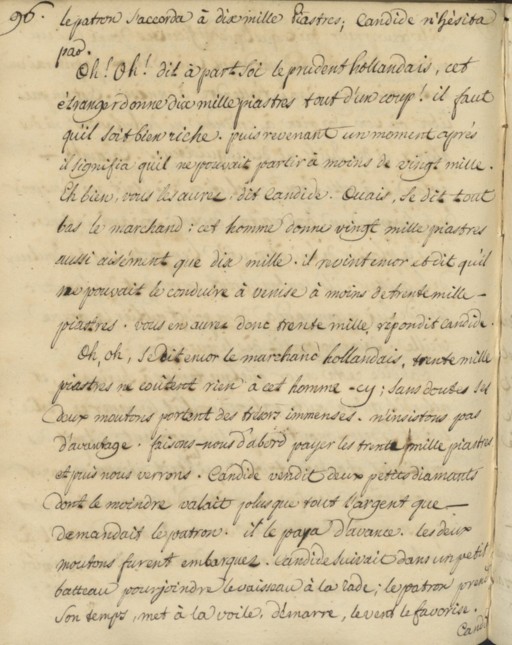 96.
le patron s'accorda à dix mille Piastres; Candide n'hésita
pas.
Oh! Oh! dit à part Soi le prudent hollandais, cet
étranger donne dix mille piastres tout d'un coup! il faut
qu'il soit bien riche. puis revenant un moment après
il signifia qu'il ne pouvait partir à moins de vingt mille.
Eh bien, vous les aurez, dit Candide. Ouais, se dit tout
bas le marchand: cet homme donne vingt mille piastres
aussi aisément que dix mille. il revint encor et dit qu'il
ne pouvait le conduire à venise à moins de trente mille -
piastres. vous en aurez donc trente mille, répondit Candide.
Oh, oh, se dit encor le marchand hollandais, trente mille
piastres ne coûtent rien à cet homme -cy; sans doutes les
deux moutons portent des trésors immenses. n'insistons pas
d'avantage. faisons-nous d'abord payer les trente mille piastres
et puis nous verrons. Candide vendit deux petits diamants
dont le moindre valait plus que tout l'argent que —
demandait le patron. il le paya d'avance. les deux
moutons furent embarquez. Candide suivait dans un petit
batteau pour joindre le vaisseau à la rade; le patron prend
son temps, met à la voile, démarre, le vent le favorise.
Candi